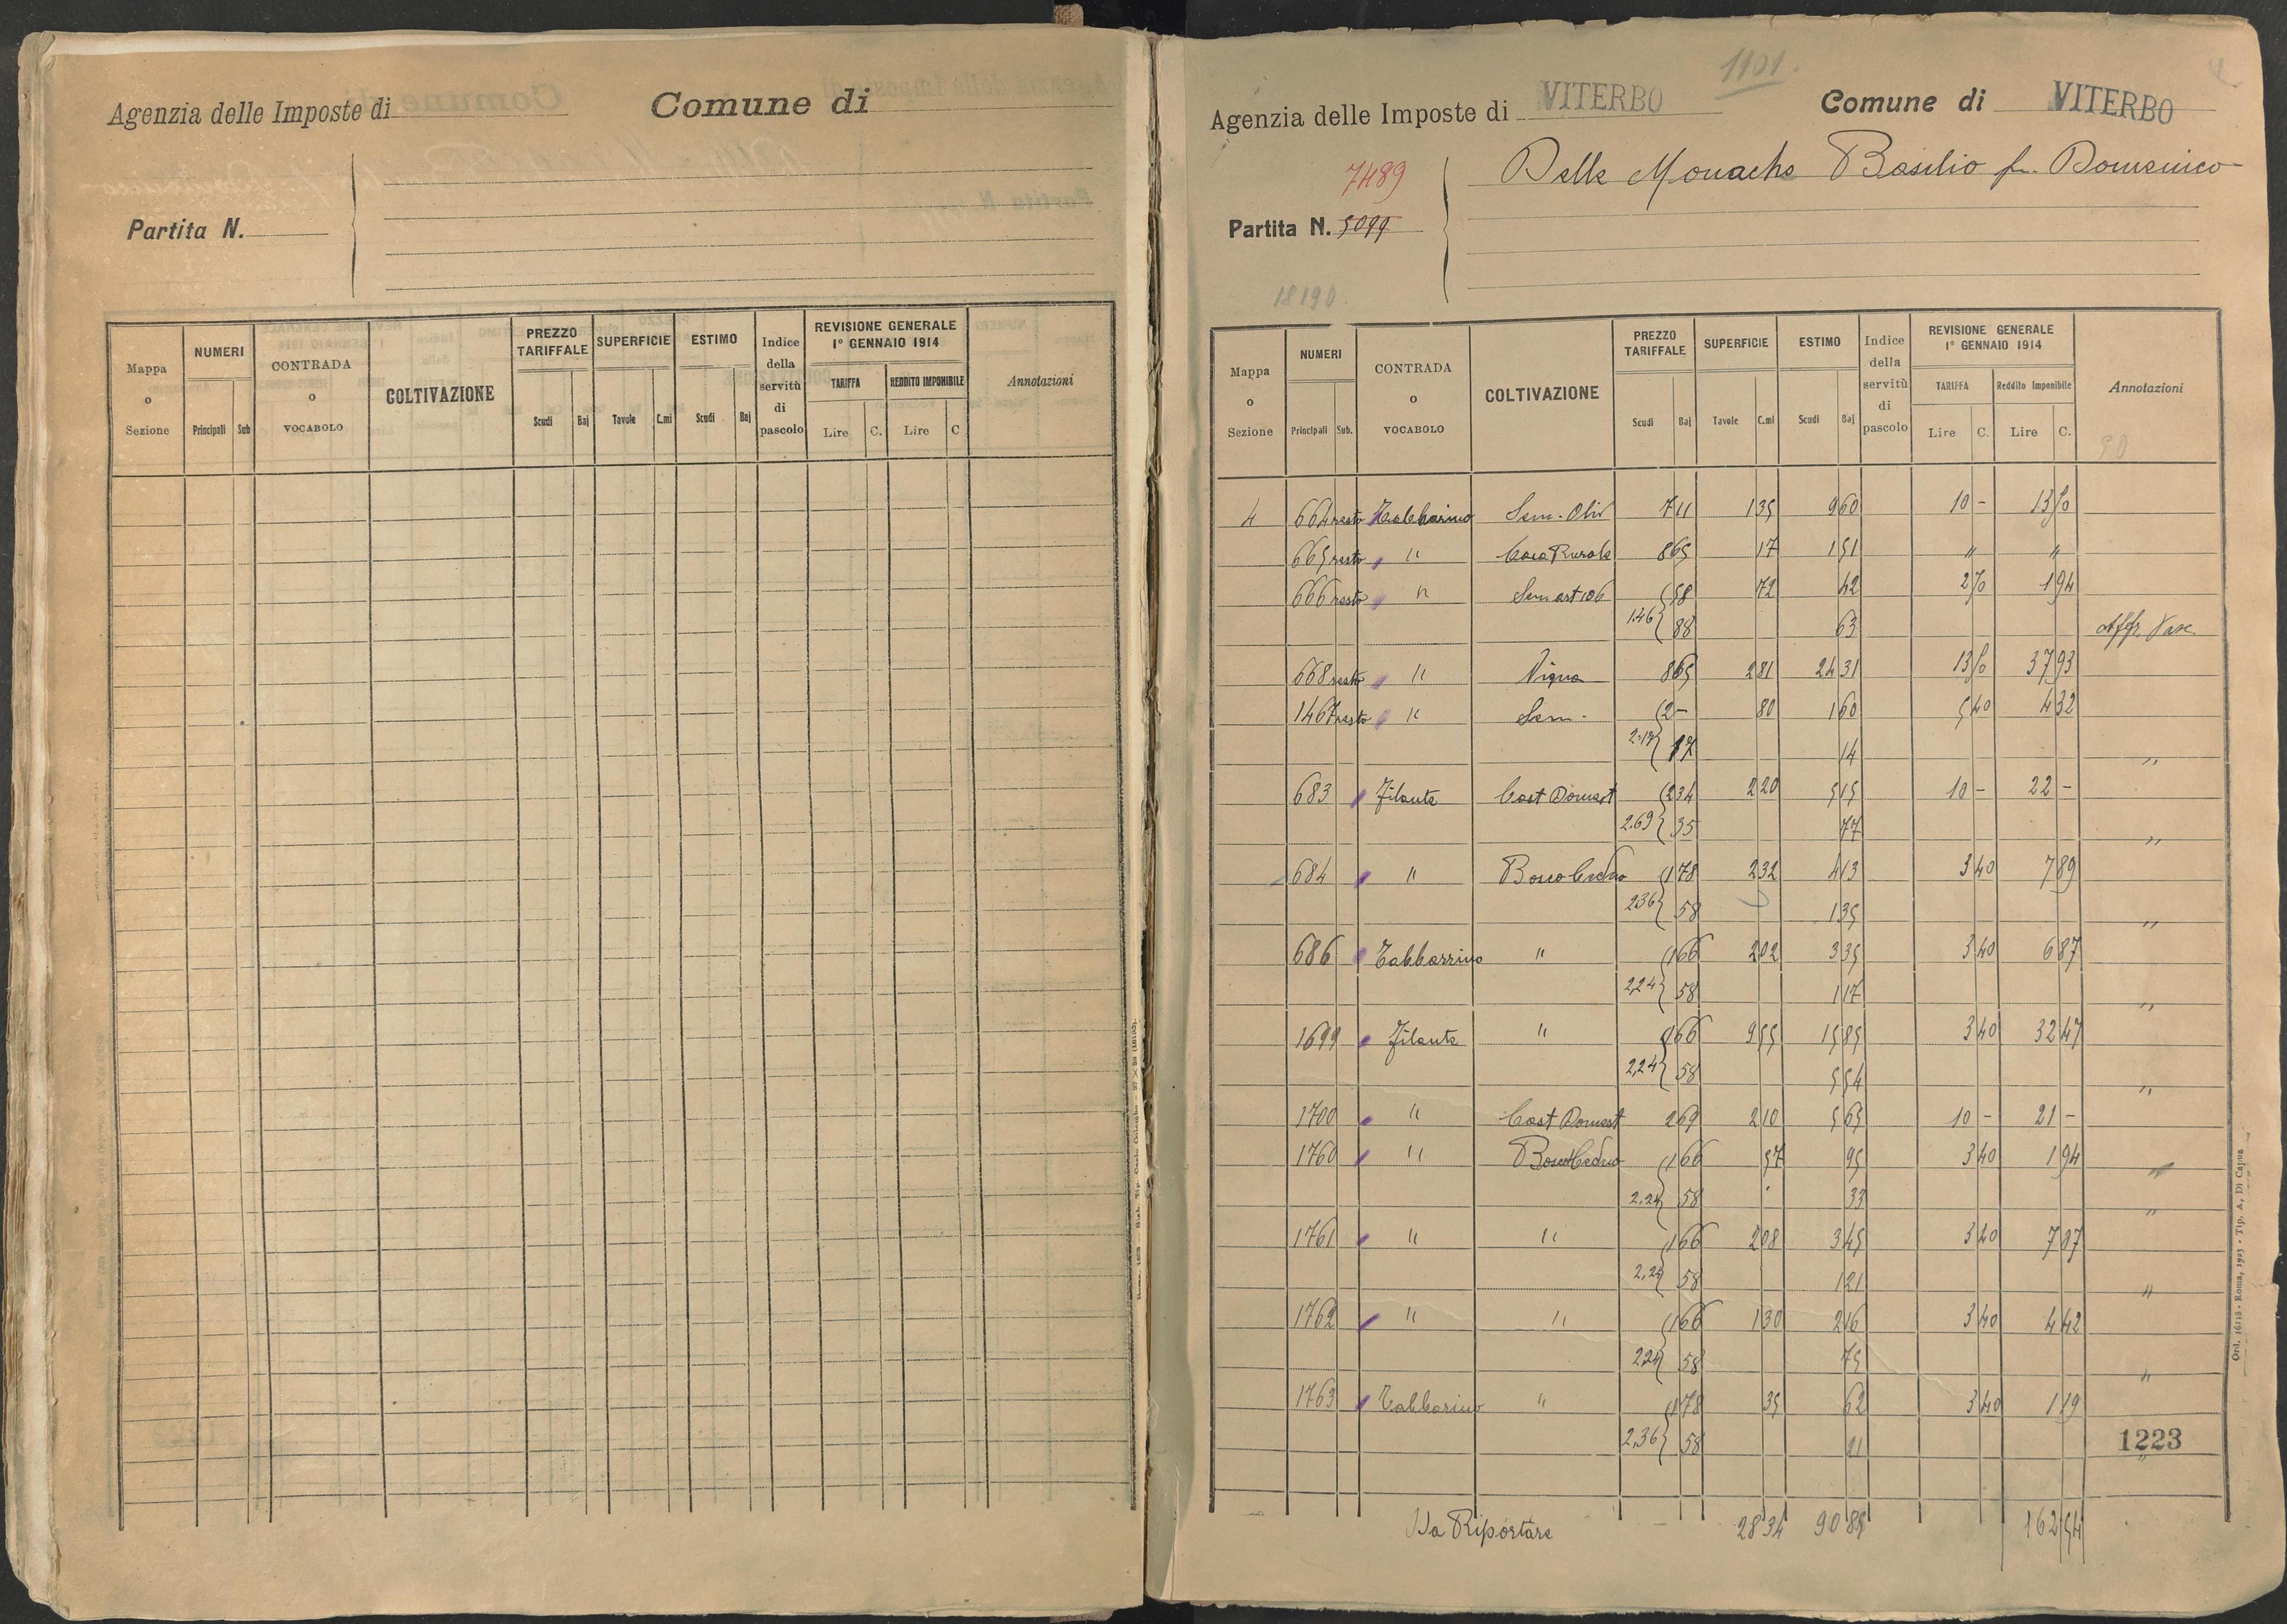 Agenzia delle Imposte di Comune di
Partita N.
Mappa o Sezione NUMERI Principali Sub CONTRADA O VOCABOLO COLTIVAZIONE PREZZO TARIFFALE Scudi Baj SUPERFICIE Tavole C.mi ESTIMO Scudi Baj Indice della servitù di pascolo REVISIONE GENERALE 1° GENNAIO 1914 TARIFFA Lire C. REDDITO IMPONIBILE Lire C Annotazioni
1101.
Agenzia delle Imposte di VITERBO Comune di VITERBO
7489 Delle Monache Basilio fu Domenico
Partita N. 5099
18190
Mappa o Sezione NUMERI Principali Sub. CONTRADA O VOCABOLO COLTIVAZIONE PREZZO TARIFFALE Scudi Baj SUPERFICIE Tavole C.mi ESTIMO Scudi Baj Indice della servitù di pascolo REVISIONE GENERALE 1° GENNAIO 1914 TARIFFA Lire C. Reddito Imponibile Lire C. Annotazioni
4 664 resto Tabbarino Sem. Oliv 7 11 1 35 9 60 10 - 13 50
665 resto " Casa Rurale 8 65 17 1 51 " "
666 resto " Sem art 106 58 72 42 2 70 1 94
1.46 88 63 Affr. Pasc.
668 resto " Vigna 8 65 2 81 24 31 13 50 37 93
1467 resto " Sem. 2 - 80 1 60 5 40 4 32
2.17 17 14 "
683 Filante Cast Domest 2 34 2 20 5 15 10 - 22 -
2.69 35 77 "
684 " Bosco Ceduo 1 78 2 32 4 13 3 40 7 89
2.36 58 1 35 "
686 Tabbarrino " 1 66 2 02 3 35 3 40 6 87
2.24 58 1 17 "
1699 Filante " 1 66 9 55 15 85 3 40 32 47
2.24 58 5 54 "
1700 " Cast Domest 2 69 2 10 5 65 10 - 21 -
1760 " Bosco Ceduo 1 66 57 95 3 40 1 94
2.24 58 33 "
1761 " " 1 66 2 08 3 45 3 40 7 07
2.24 58 1 21 "
1762 " " 1 66 1 30 2 16 3 40 4 42
2.24 58 75 "
1763 Tabbarino " 1 78 35 62 3 40 1 19
2.36 58 21 "
1223
Da Riportare 28 34 90 85 162 54
Ord. 16118 - Roma, 1923 - Tip. A. Di Capua